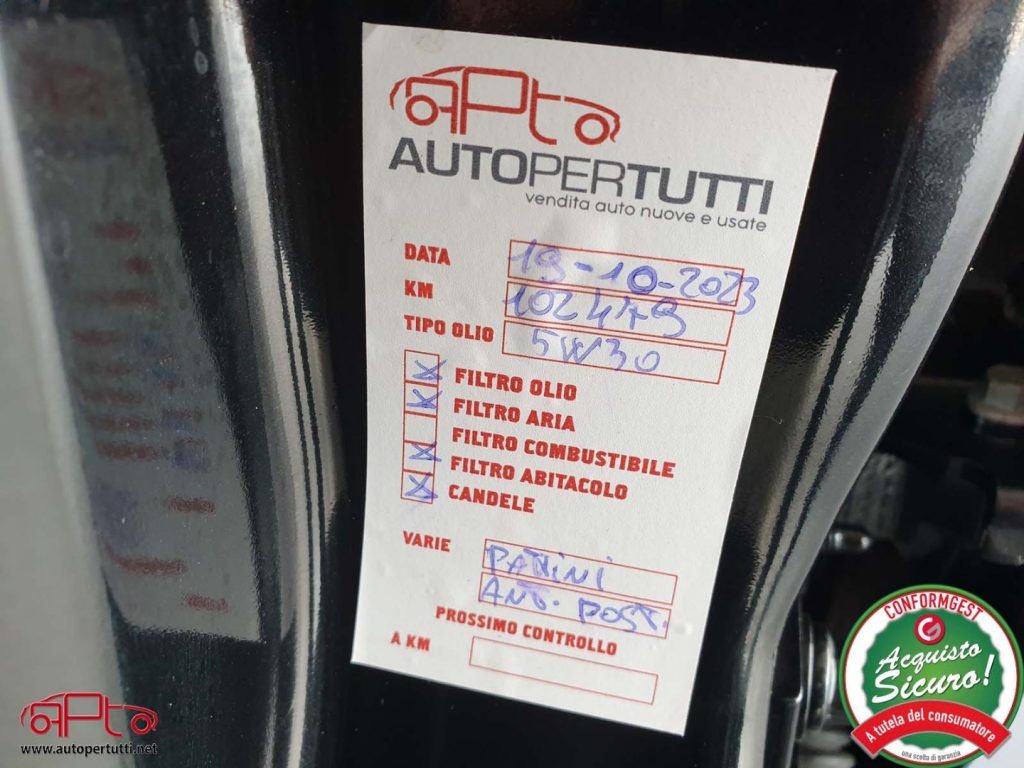 APto
AUTOPERTUTTI
vendita auto nuove e usate
DATA 19-10-2023
KM 102479
TIPO OLIO 5W30
X FILTRO OLIO
X FILTRO ARIA
FILTRO COMBUSTIBILE
X FILTRO ABITACOLO
X CANDELE
VARIE PATTINI
ANT. POST.
PROSSIMO CONTROLLO
A KM
APto
www.autopertutti.net
CONFORMGEST
Acquisto
Sicuro!
A tutela del consumatore
una scelta di garanzia